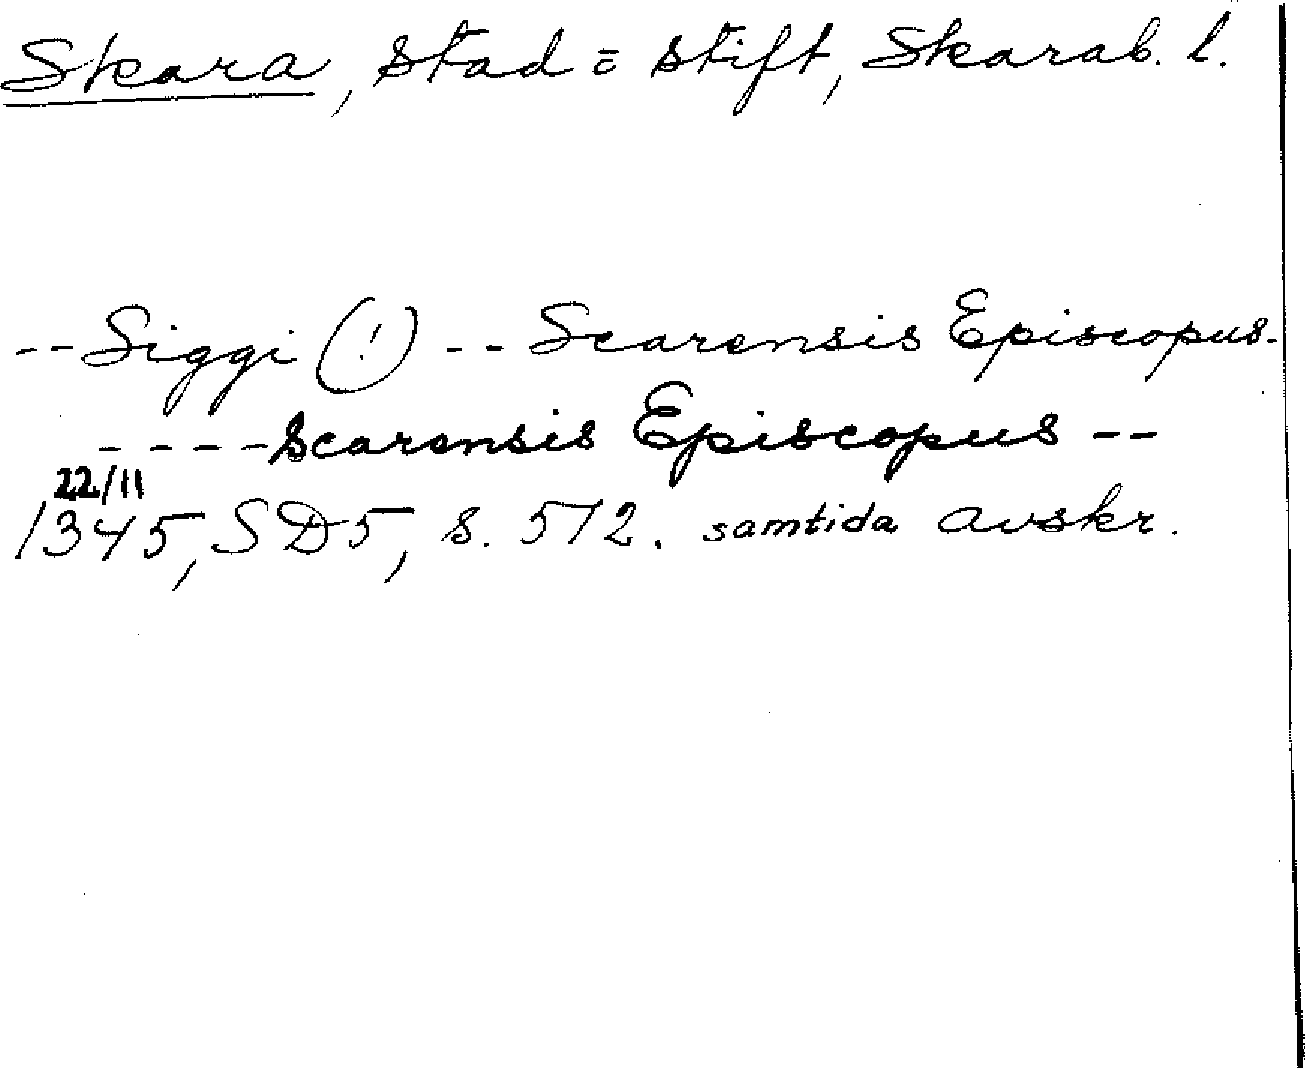 Skara, stad = stift, Skarab. l.
-- Siggi (!) -- Scarensis Episcopus-
---- scarensis Episcopus --
22/11
1345, SD5, s. 572. samtida avskr.